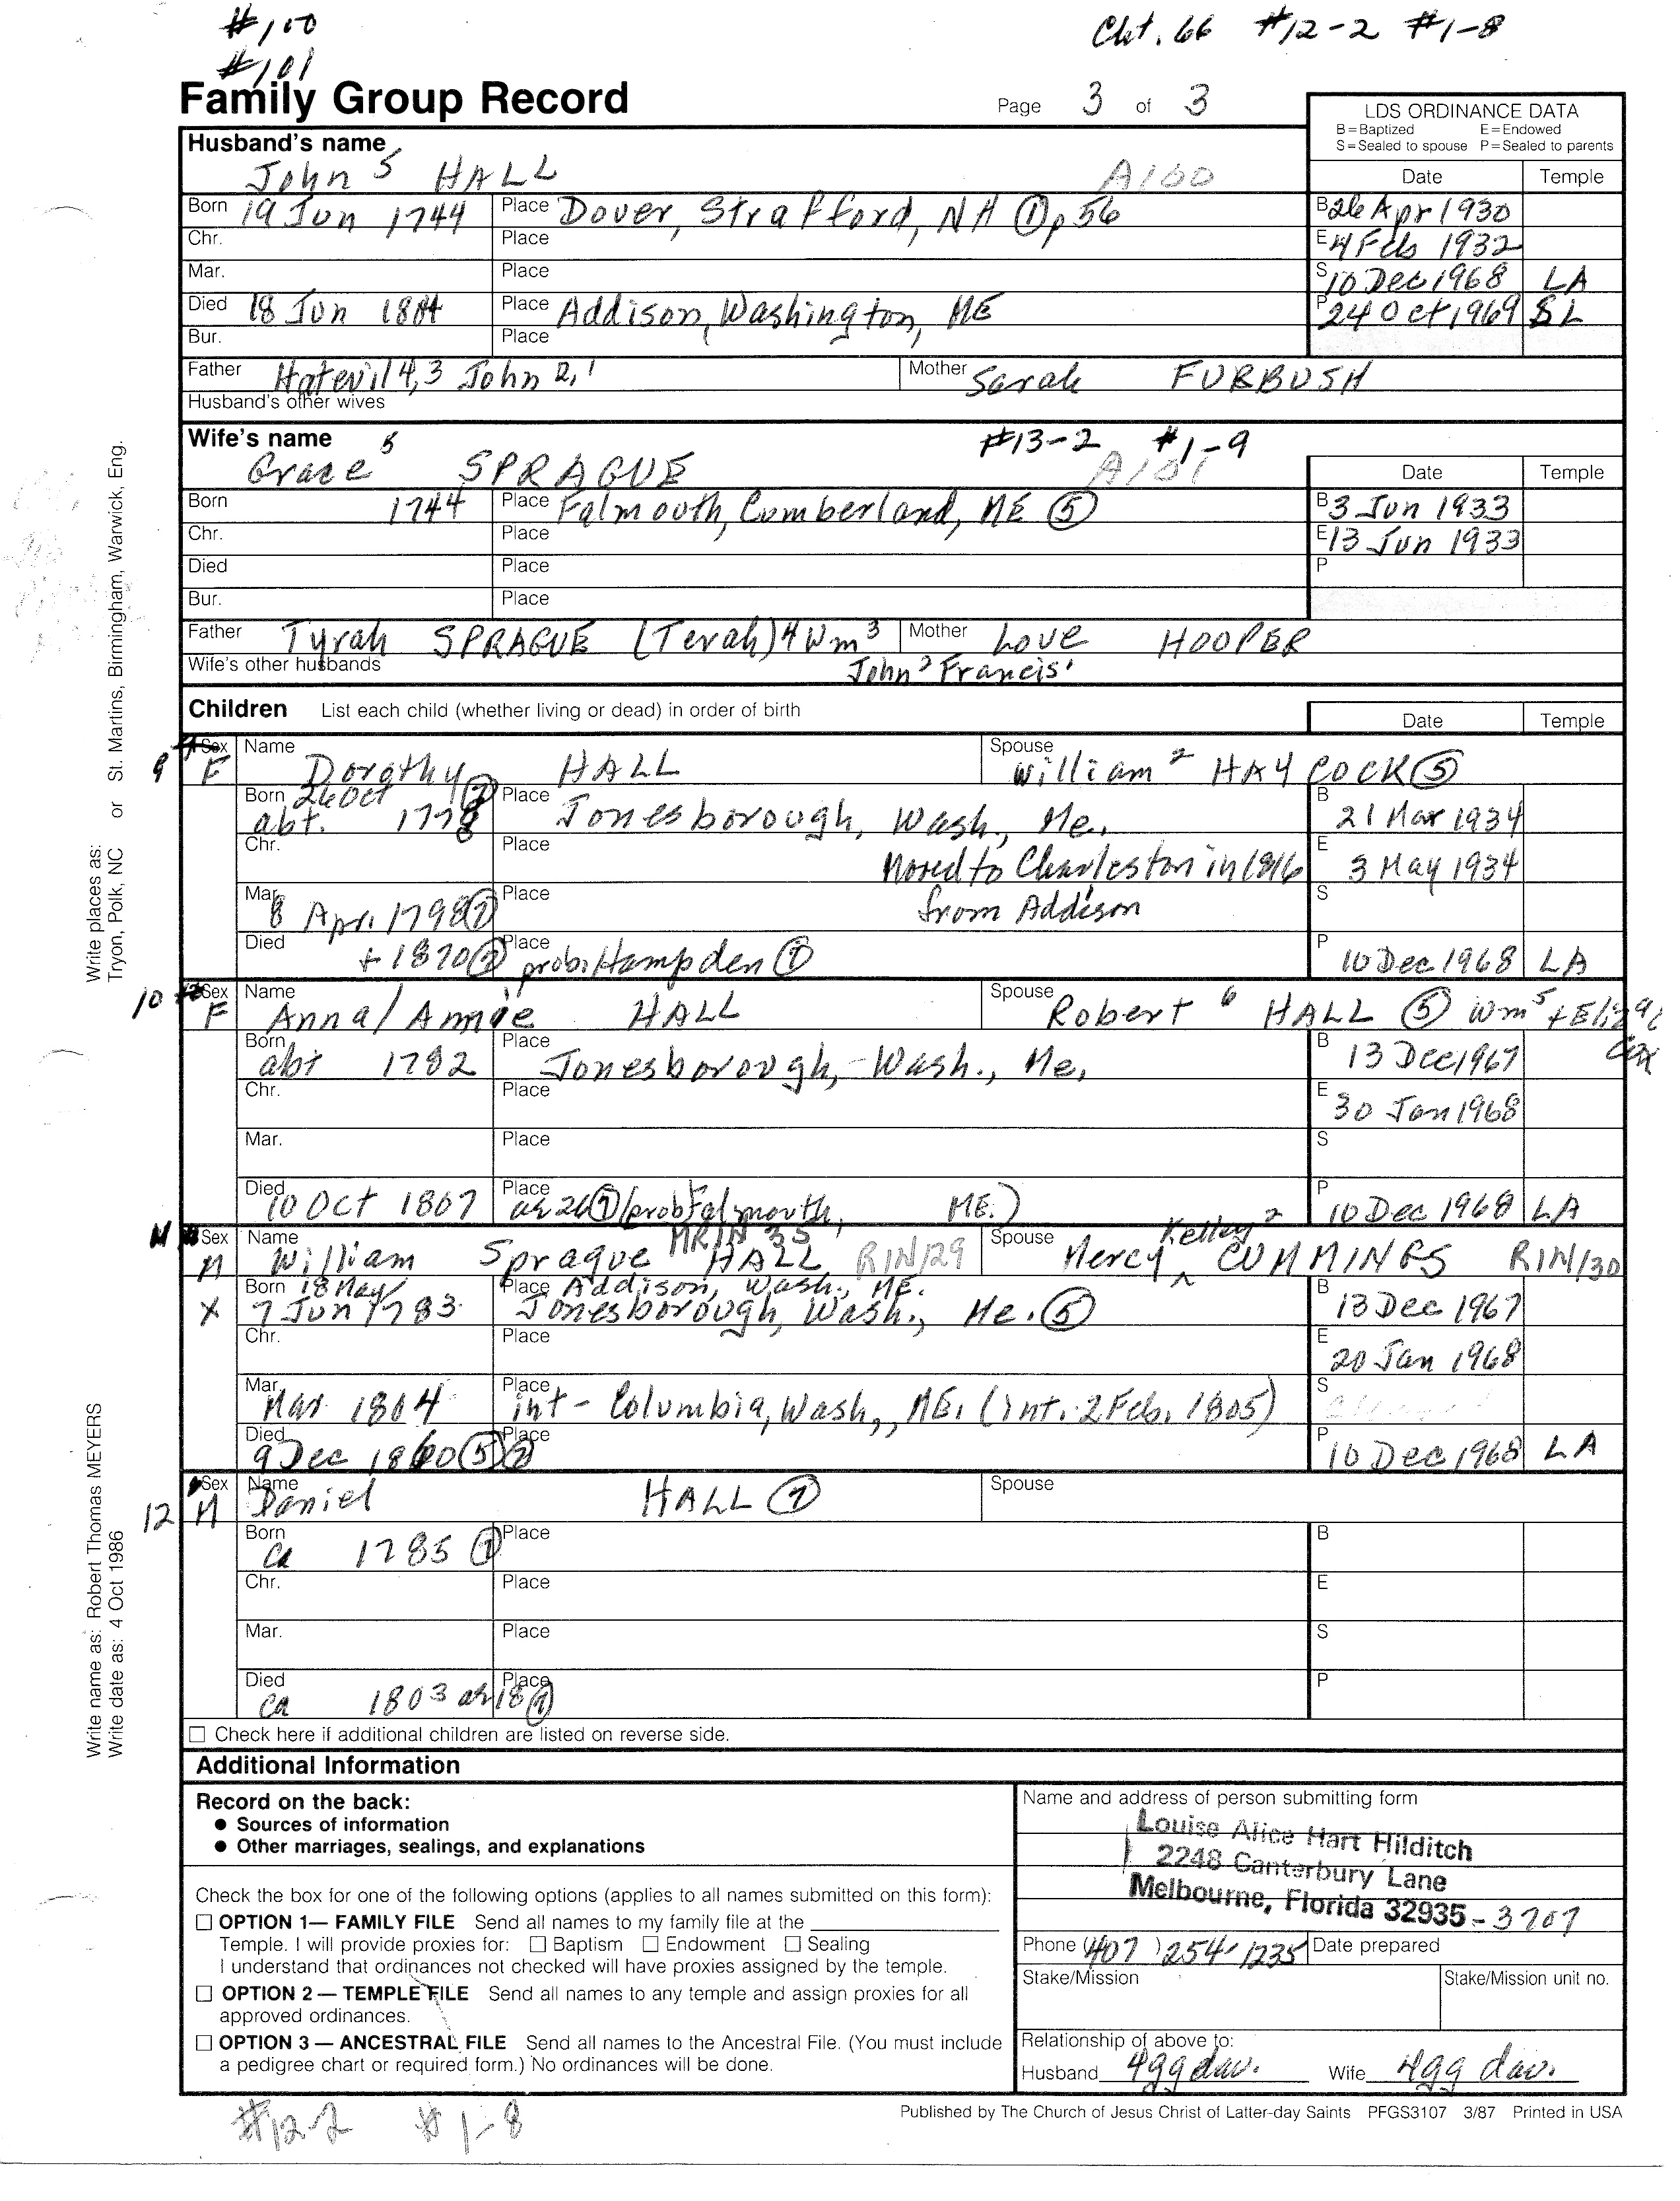 #100 Cht. 66 #12-2 #1-8
#101
Family Group Record Page 3 of 3
LDS ORDINANCE DATA
B=Baptized E=Endowed
S=Sealed to spouse P=Sealed to parents
Husband's name
John 5 HALL A100 Date Temple
Born 19 Jun 1744 Place Dover, Strafford, NH ① p 56 B 26 Apr 1930
Chr. Place E 4 Feb 1932
Mar. Place S 10 Dec 1968 LA
Died 18 Jun 1804 Place Addison, Washington, ME P 24 Oct 1969 SL
Bur. Place
Father Hatevil 4,3 John 2,1 Mother Sarah FURBUSH
Husband's other wives
Wife's name #13-2 #1-9
Grace 5 SPRAGUE A101 Date Temple
Born 1744 Place Falmouth, Cumberland, ME ⑤ B 3 Jun 1933
Chr. Place E 13 Jun 1933
Died Place P
Bur. Place
Father Tyrah SPRAGUE (Terah) 4 Wm 3 Mother Love HOOPER
Wife's other husbands John 2 Francis 1
Children List each child (whether living or dead) in order of birth Date Temple
9 Sex Name Spouse
F Dorothy HALL William 2 HAYCOCK ⑤
Born 26 Oct ⑦ Place B
abt. 1778 Jonesborough, Wash., Me. 21 Mar 1934
Chr. Place E
Moved to Charleston in 1816 3 May 1934
Mar. Place from Addison S
8 Apr. 1798 ⑦
Died + 1870 ⑦ Place prob. Hampden ⑦ P 10 Dec 1968 LA
10 Sex Name Spouse
F Anna/Annie HALL Robert 6 HALL ⑤ Wm 5 + Eliza
Cox
Born abt 1782 Place Jonesborough, Wash., Me. B 13 Dec 1967
Chr. Place E 30 Jan 1968
Mar. Place S
Died 10 Oct 1807 Place ae 26 ⑦ (prob Falmouth, ME.) P 10 Dec 1968 LA
Sex Name MRIN 35 Spouse Kelley 2
M William Sprague HALL RIN129 Mercy ^ CUMMINGS RIN130
Born 18 May/ Place Addison, Wash., ME. B
X 7 Jun 1783 Jonesborough, Wash., Me. ⑤ 13 Dec 1967
Chr. Place E 20 Jan 1968
Mar. Mar 1804 Place int - Columbia, Wash., ME. (int. 2 Feb. 1805) S
Died 9 Dec 1860 ⑤ ⑦ Place P 10 Dec 1968 LA
Sex Name Spouse
12 M Daniel HALL ⑦
Born ca 1785 ⑦ Place B
Chr. Place E
Mar. Place S
Died ca 1803 ae 18 ⑦ Place P
☐ Check here if additional children are listed on reverse side.
Additional Information
Record on the back:
● Sources of information
● Other marriages, sealings, and explanations
Check the box for one of the following options (applies to all names submitted on this form):
☐ OPTION 1— FAMILY FILE Send all names to my family file at the
Temple. I will provide proxies for: ☐ Baptism ☐ Endowment ☐ Sealing
I understand that ordinances not checked will have proxies assigned by the temple.
☐ OPTION 2 — TEMPLE FILE Send all names to any temple and assign proxies for all
approved ordinances.
☐ OPTION 3 — ANCESTRAL FILE Send all names to the Ancestral File. (You must include
a pedigree chart or required form.) No ordinances will be done.
Name and address of person submitting form
Louise Alice Hart Hilditch
2248 Canterbury Lane
Melbourne, Florida 32935-3707
Phone (407) 254-1235 Date prepared
Stake/Mission Stake/Mission unit no.
Relationship of above to:
Husband 4gg dau. Wife 4gg dau.
Published by The Church of Jesus Christ of Latter-day Saints PFGS3107 3/87 Printed in USA
#12-2 #1-8
Write places as: St. Martins, Birmingham, Warwick, Eng.
Tryon, Polk, NC or
Write name as: Robert Thomas MEYERS
Write date as: 4 Oct 1986